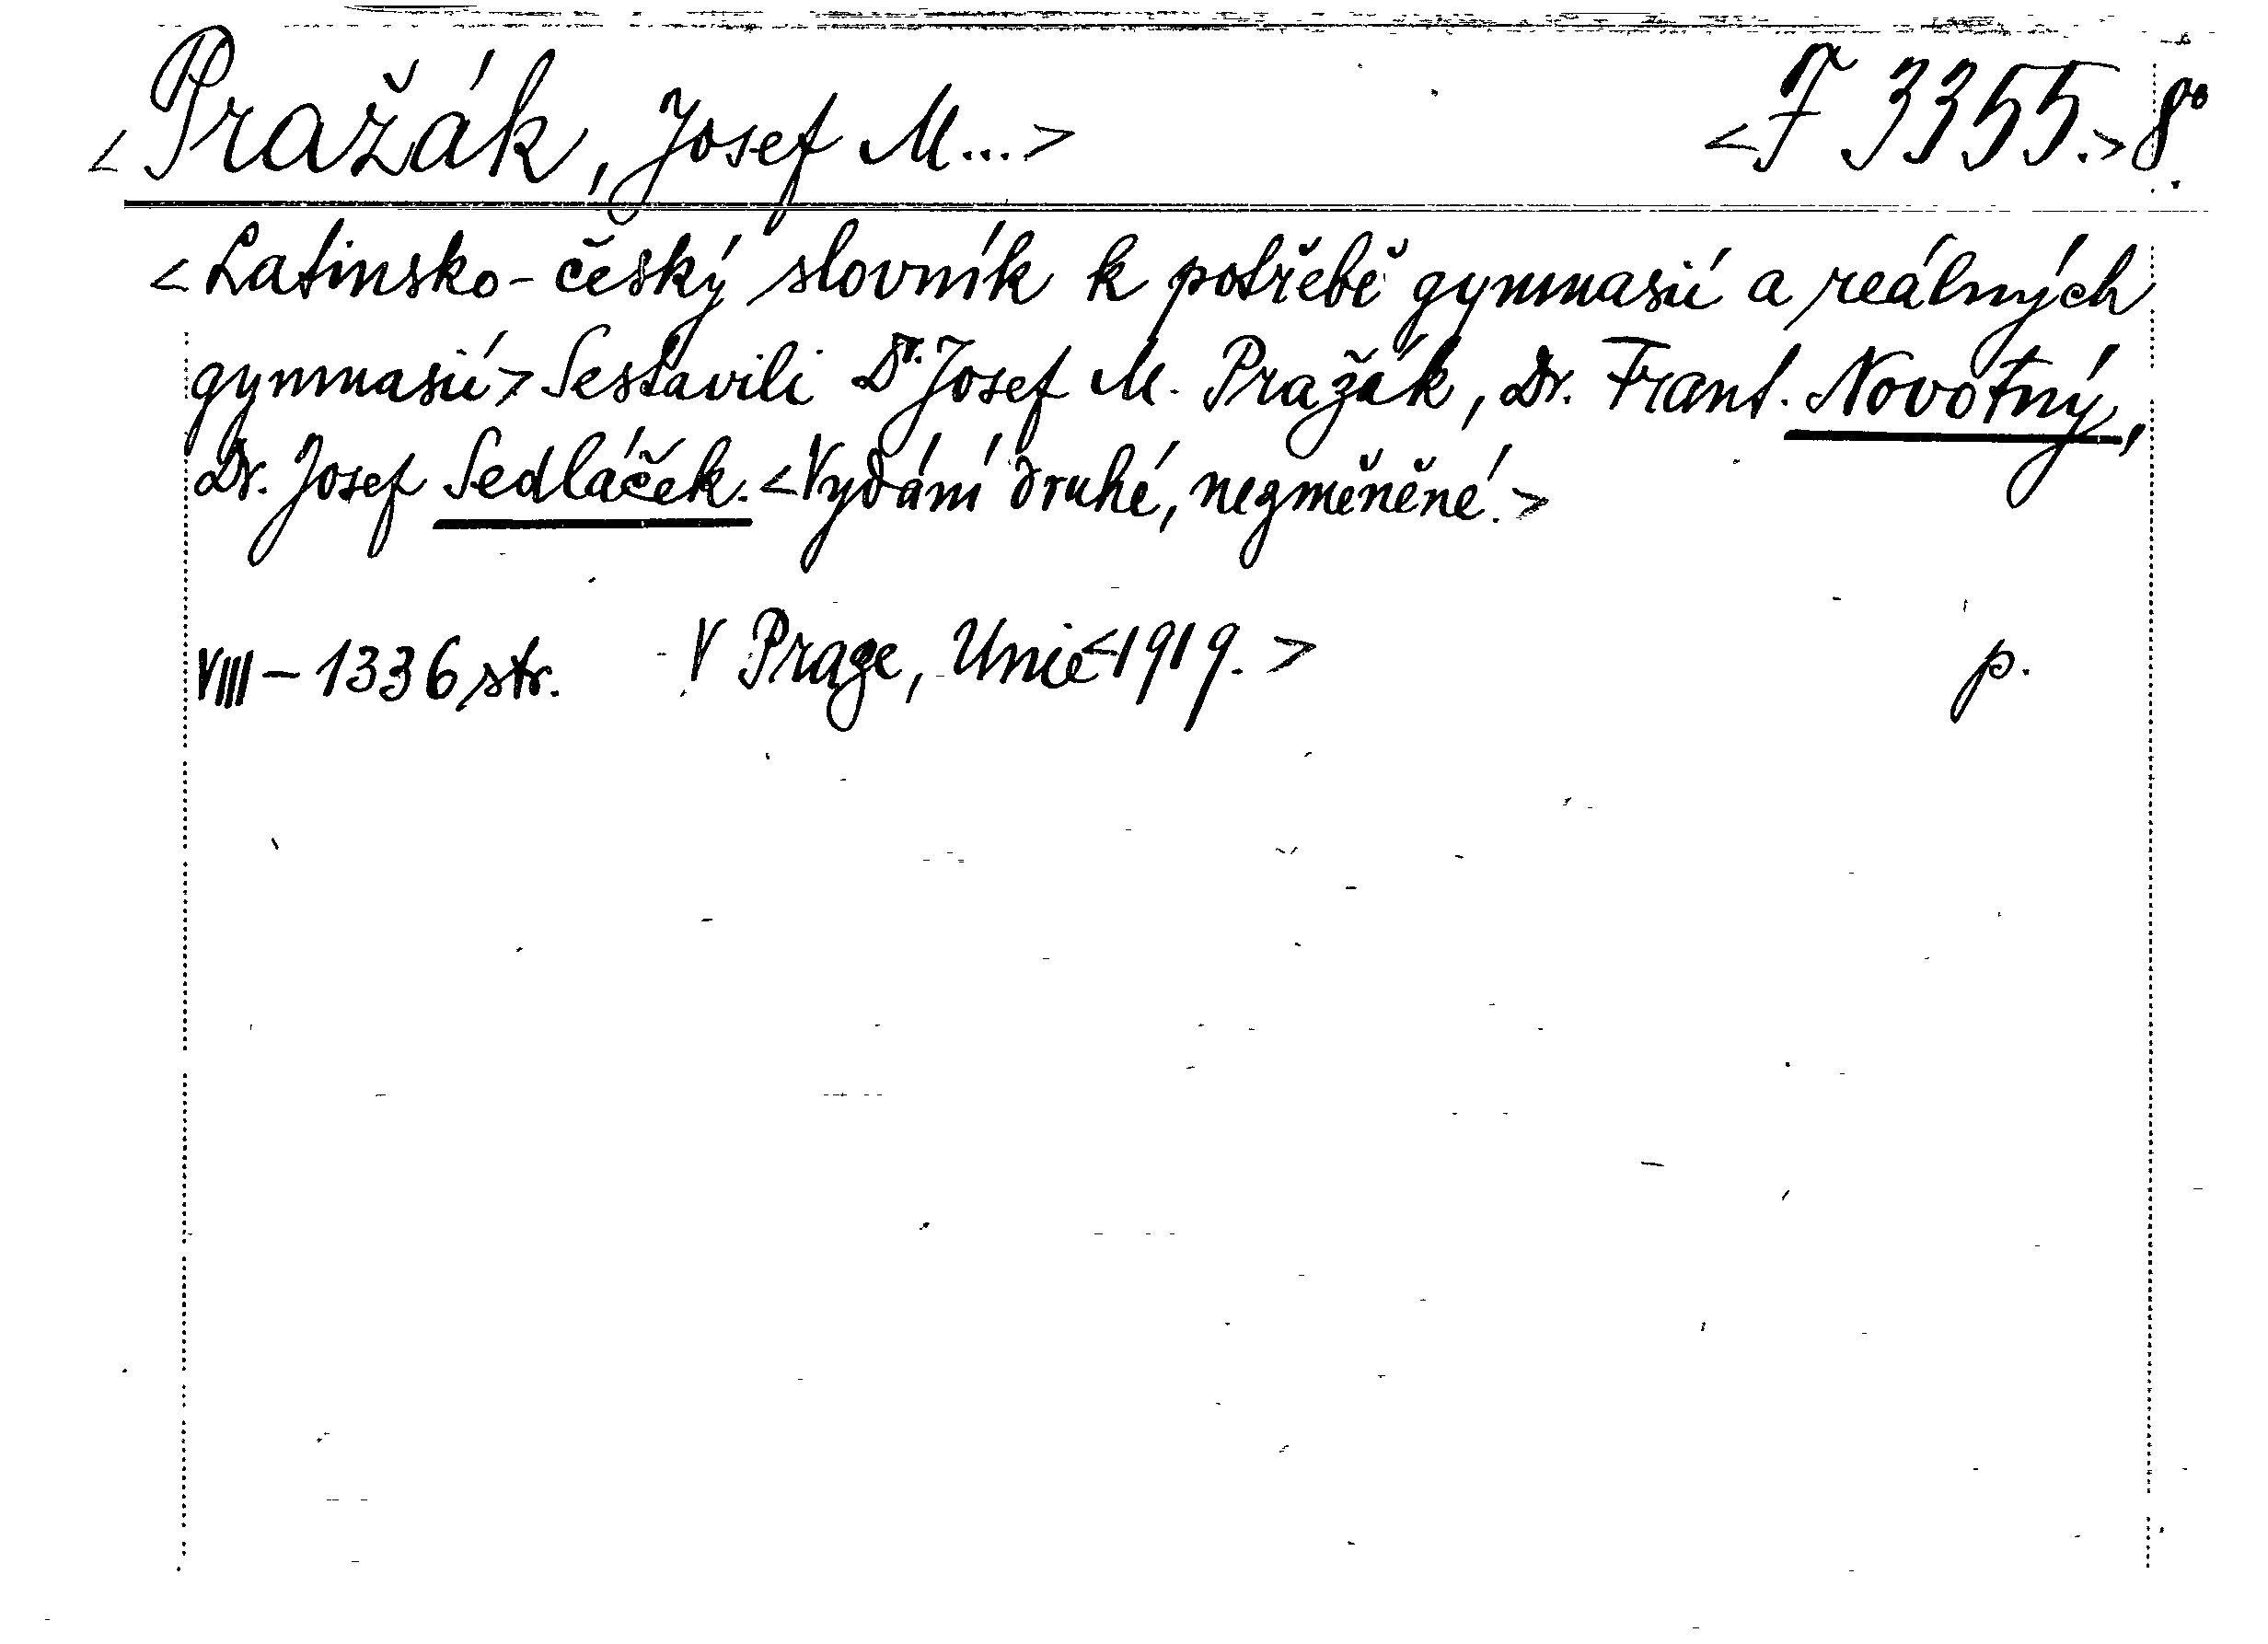 <Pražák, Josef M...> <F 3355.> 8°.
<Latinsko-český slovník k potřebě gymnasií a reálných
gymnasií> Sestavili Dr. Josef M. Pražák, Dr. Frant. Novotný,
Dr. Josef Sedláček. <Vydání druhé, nezměněné.>
VIII - 1336 str. V Praze, Unie <1919.> p.